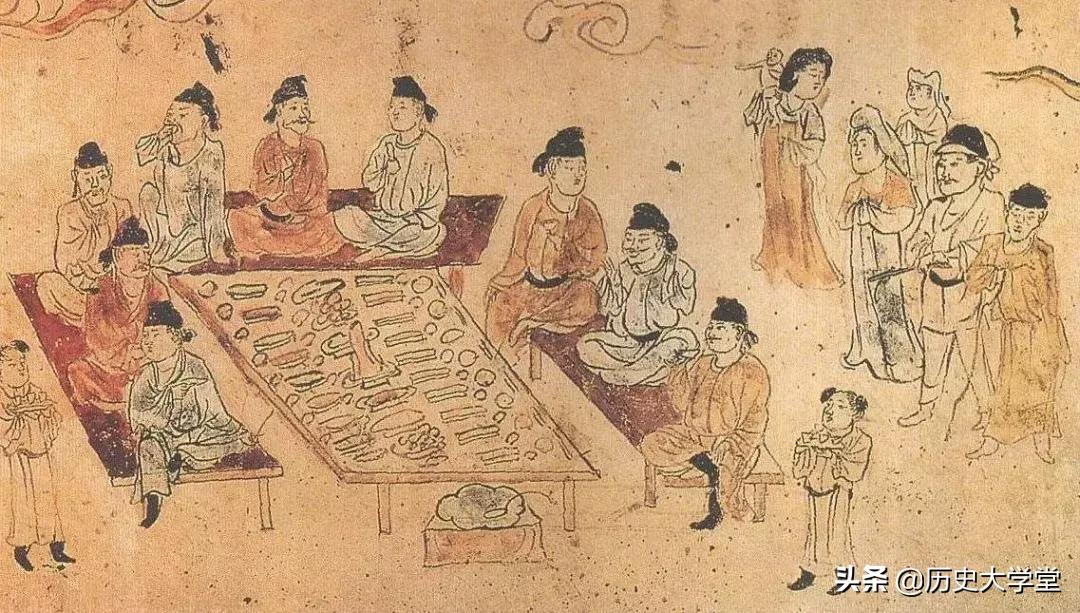 头条 @历史大学堂